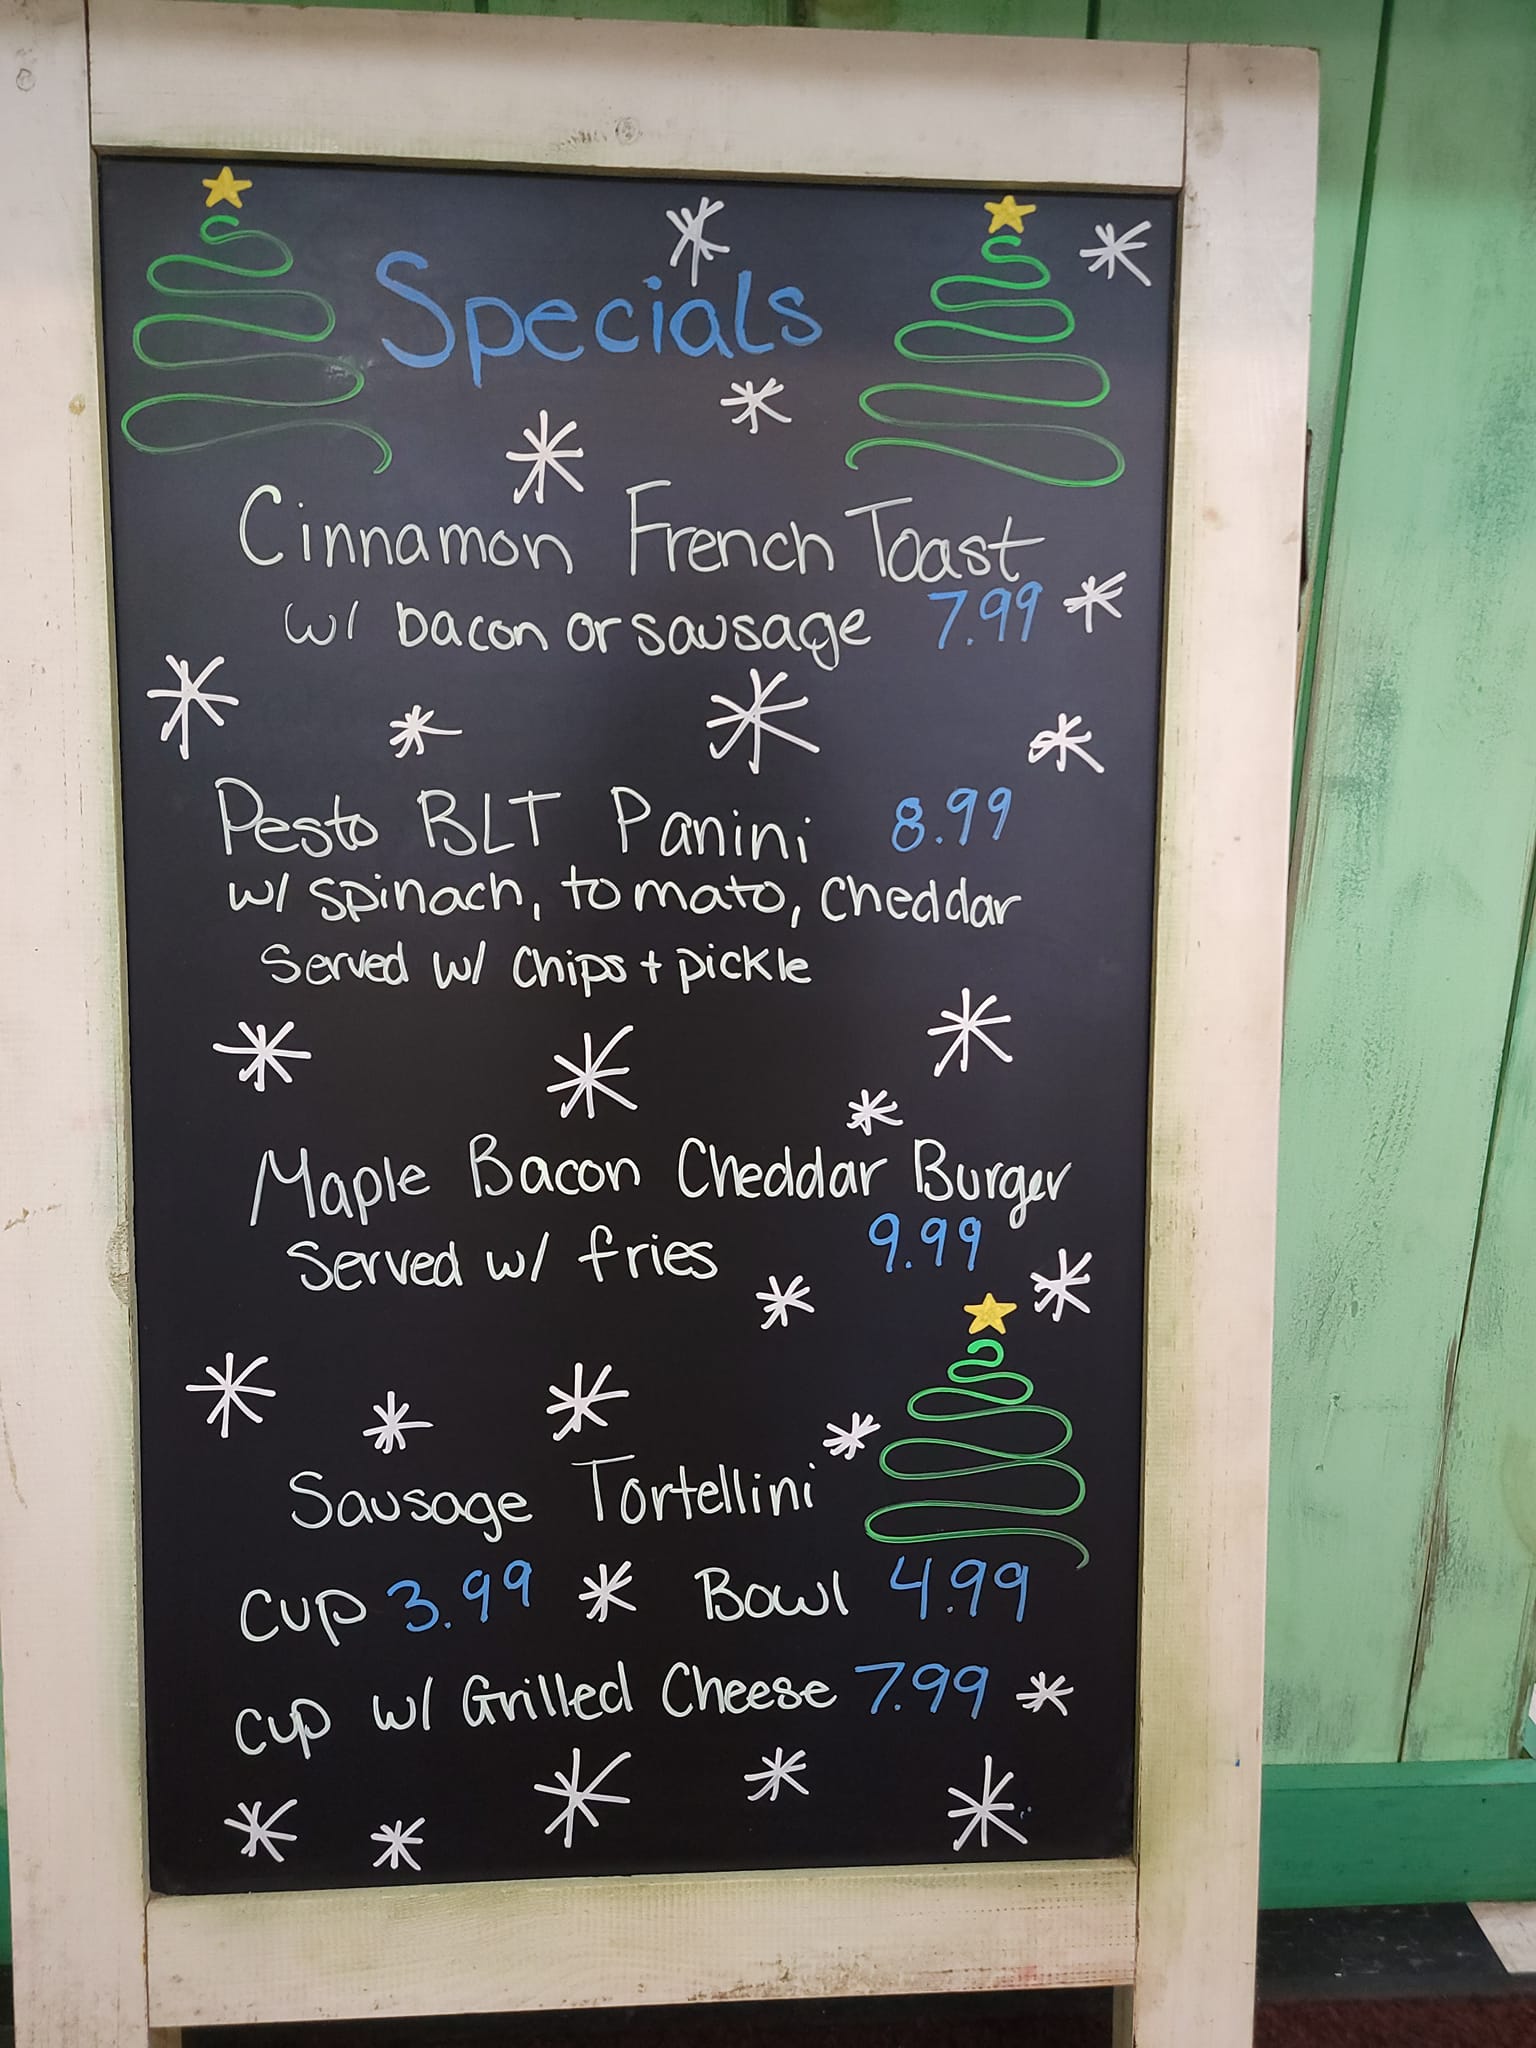 Specials
Cinnamon French Toast
w/ bacon or sausage 7.99
Pesto BLT Panini 8.99
w/ spinach, tomato, cheddar
Served w/ chips + pickle
Maple Bacon Cheddar Burger
Served w/ fries 9.99
Sausage Tortellini
Cup 3.99 Bowl 4.99
Cup w/ Grilled Cheese 7.99